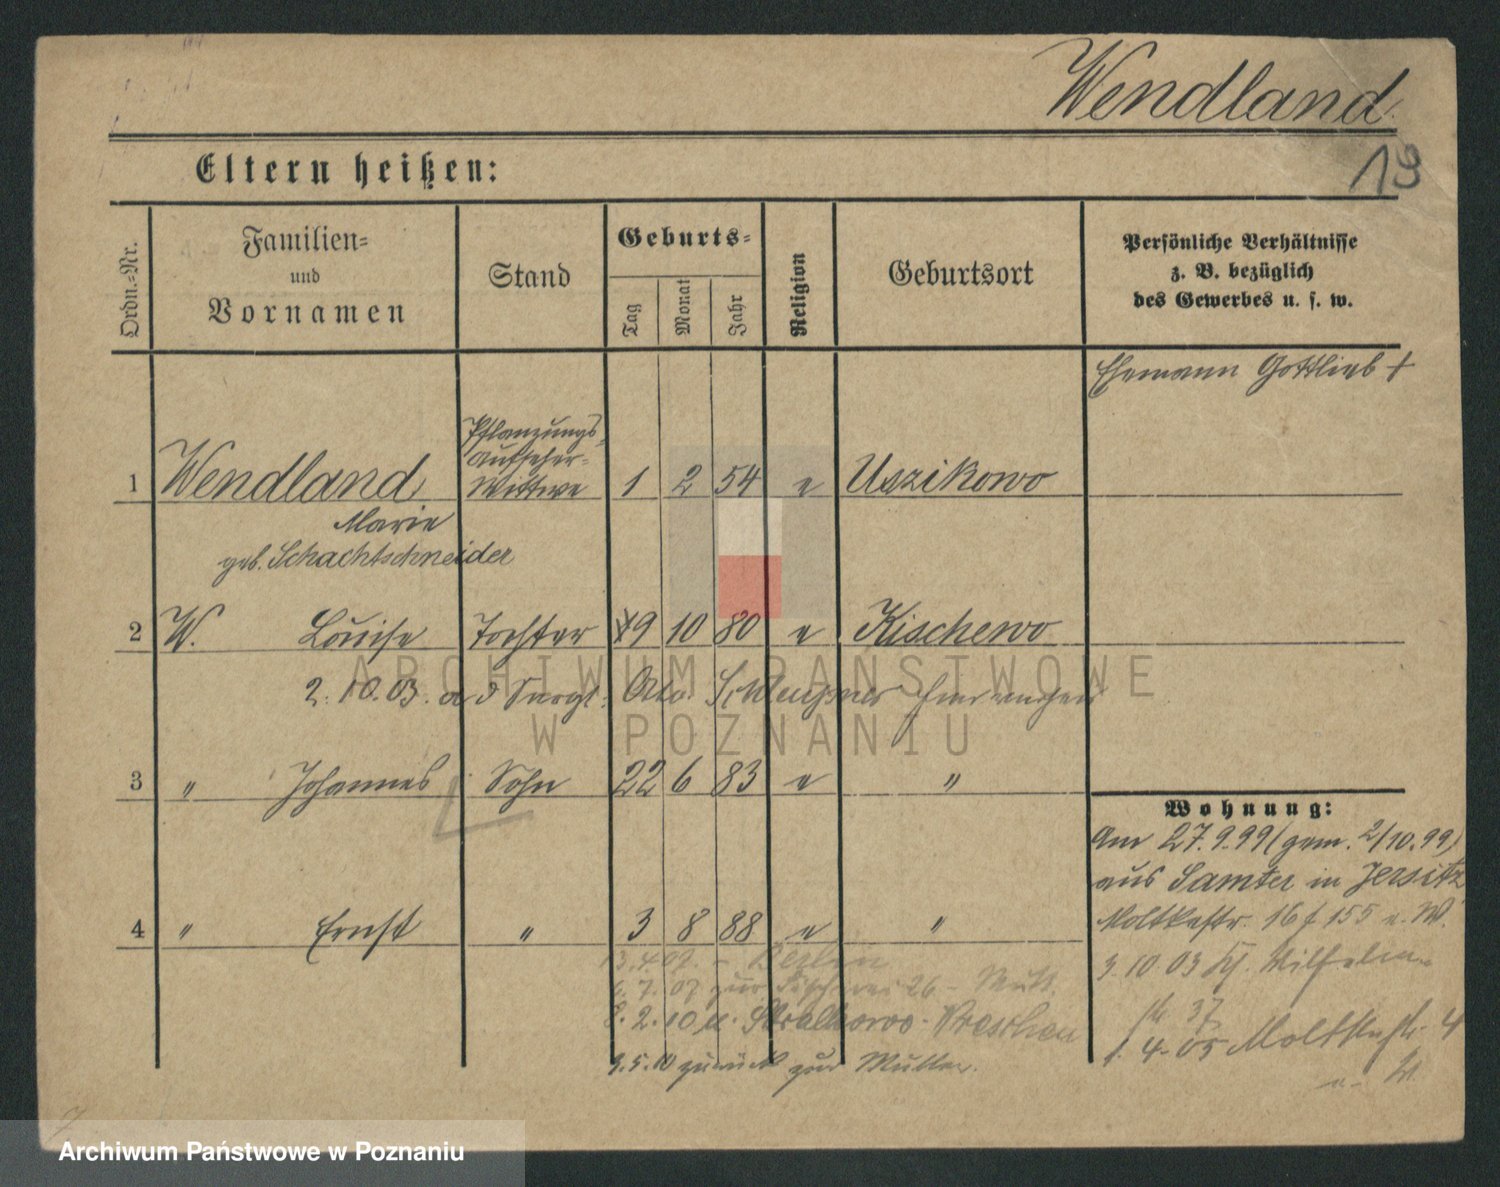 Wendland.
19
Eltern heißen:
Ordn.-Nr.
Familien-
und
Vornamen
Stand
Geburts-
Tag
Monat
Jahr
Religion
Geburtsort
Persönliche Verhältnisse
z. B. bezüglich
des Gewerbes u. s. w.
Ehemann Gottlieb +
Pflanzungs-
aufseher-
1 Wendland Wittwe 1 2 54 e Uszikowo
Marie
geb. Schachtschneider
2 W. Louise Tochter 19 10 80 e Kischewo
2.10.03. a d Otto
3 " Johannes Sohn 22 6 83 e "
Wohnung:
Am 27.9.99 (gem. 2/10.99)
aus Samter in Jersitz
Moltkestr. 16 155 u. W.
4 " Ernst " 3 8 88 e "
3.10.03
13.4.07. - Berlin
7.07 zur 26 - Mutt.
37
8.2.10 n. Stralkowo - Wreschen
1.4.05 Moltkestr. 4
9.5.10 zurück zur Mutter.
u. W.
ARCHIWUM PAŃSTWOWE
W POZNANIU
Archiwum Państwowe w Poznaniu